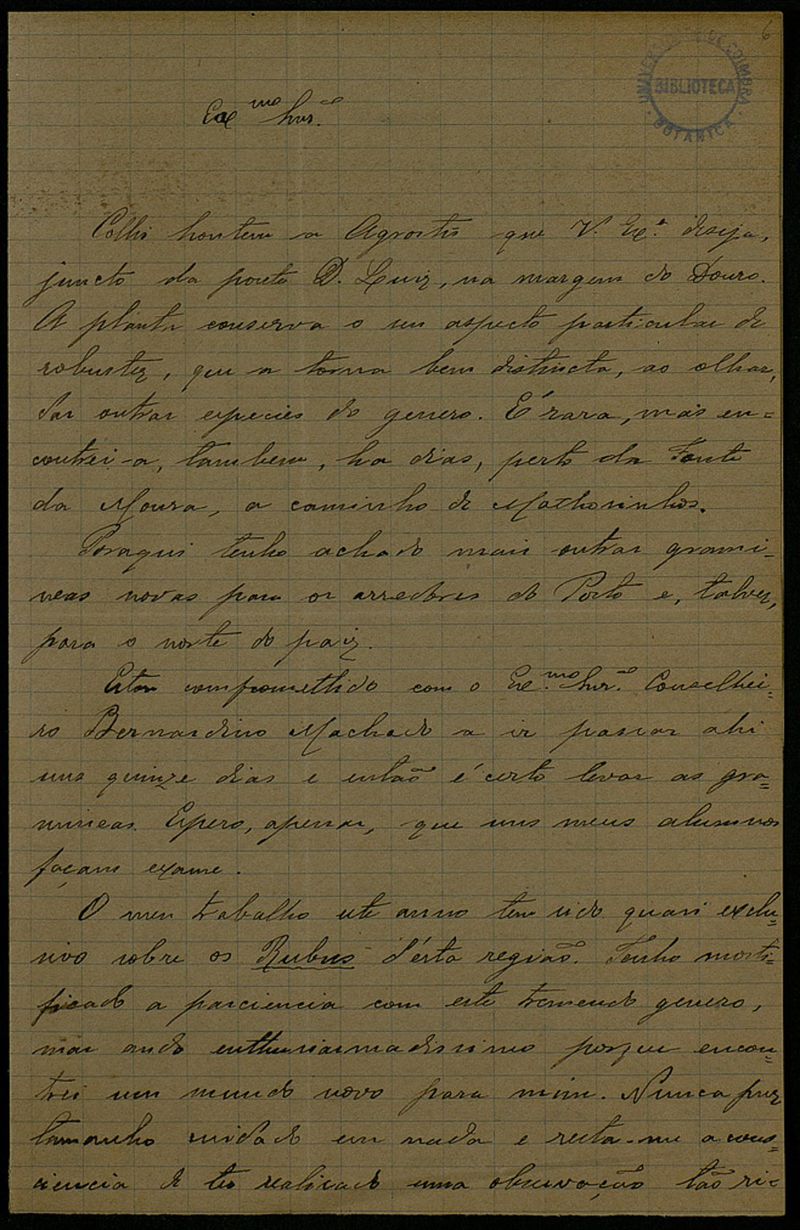 6
UNIVERSIDADE DE COIMBRA
BIBLIOTECA
BOTANICA
Exmo Snr.
Colhi hontem a Agrostis que V. Exa. deseja,
juncto da ponte D. Luiz, na margem do Douro.
A planta conserva o seu aspecto particular de
robustez, que a torna bem distincta, ao olhar,
das outras especies do genero. É rara, mas en-
contrei-a, tambem, ha dias, perto da Fonte
da Moura, a caminho de Mathosinhos.
Poraqui tenho achado mais outras grami-
neas novas para os arredores do Porto e, talvez,
para o norte do paiz.
Estou compromettido com o Exmo. Snr. Conselhei-
ro Bernardino Machado a ir passar ahi
uns quinze dias e então é certo levar as gra-
mineas. Espero, apenas, que uns meus alumnos
façam exame.
O meu trabalho este anno tem sido quasi exclu-
sivo sobre os Rubus d'esta região. Tenho morti-
ficado a paciencia com este tremendo genero,
mas ando enthusiasmadissimo porque encon-
trei um mundo novo para mim. Nunca puz
tamanho cuidado em nada e resta-me a cons-
ciencia de ter realisado uma observação tão ri-